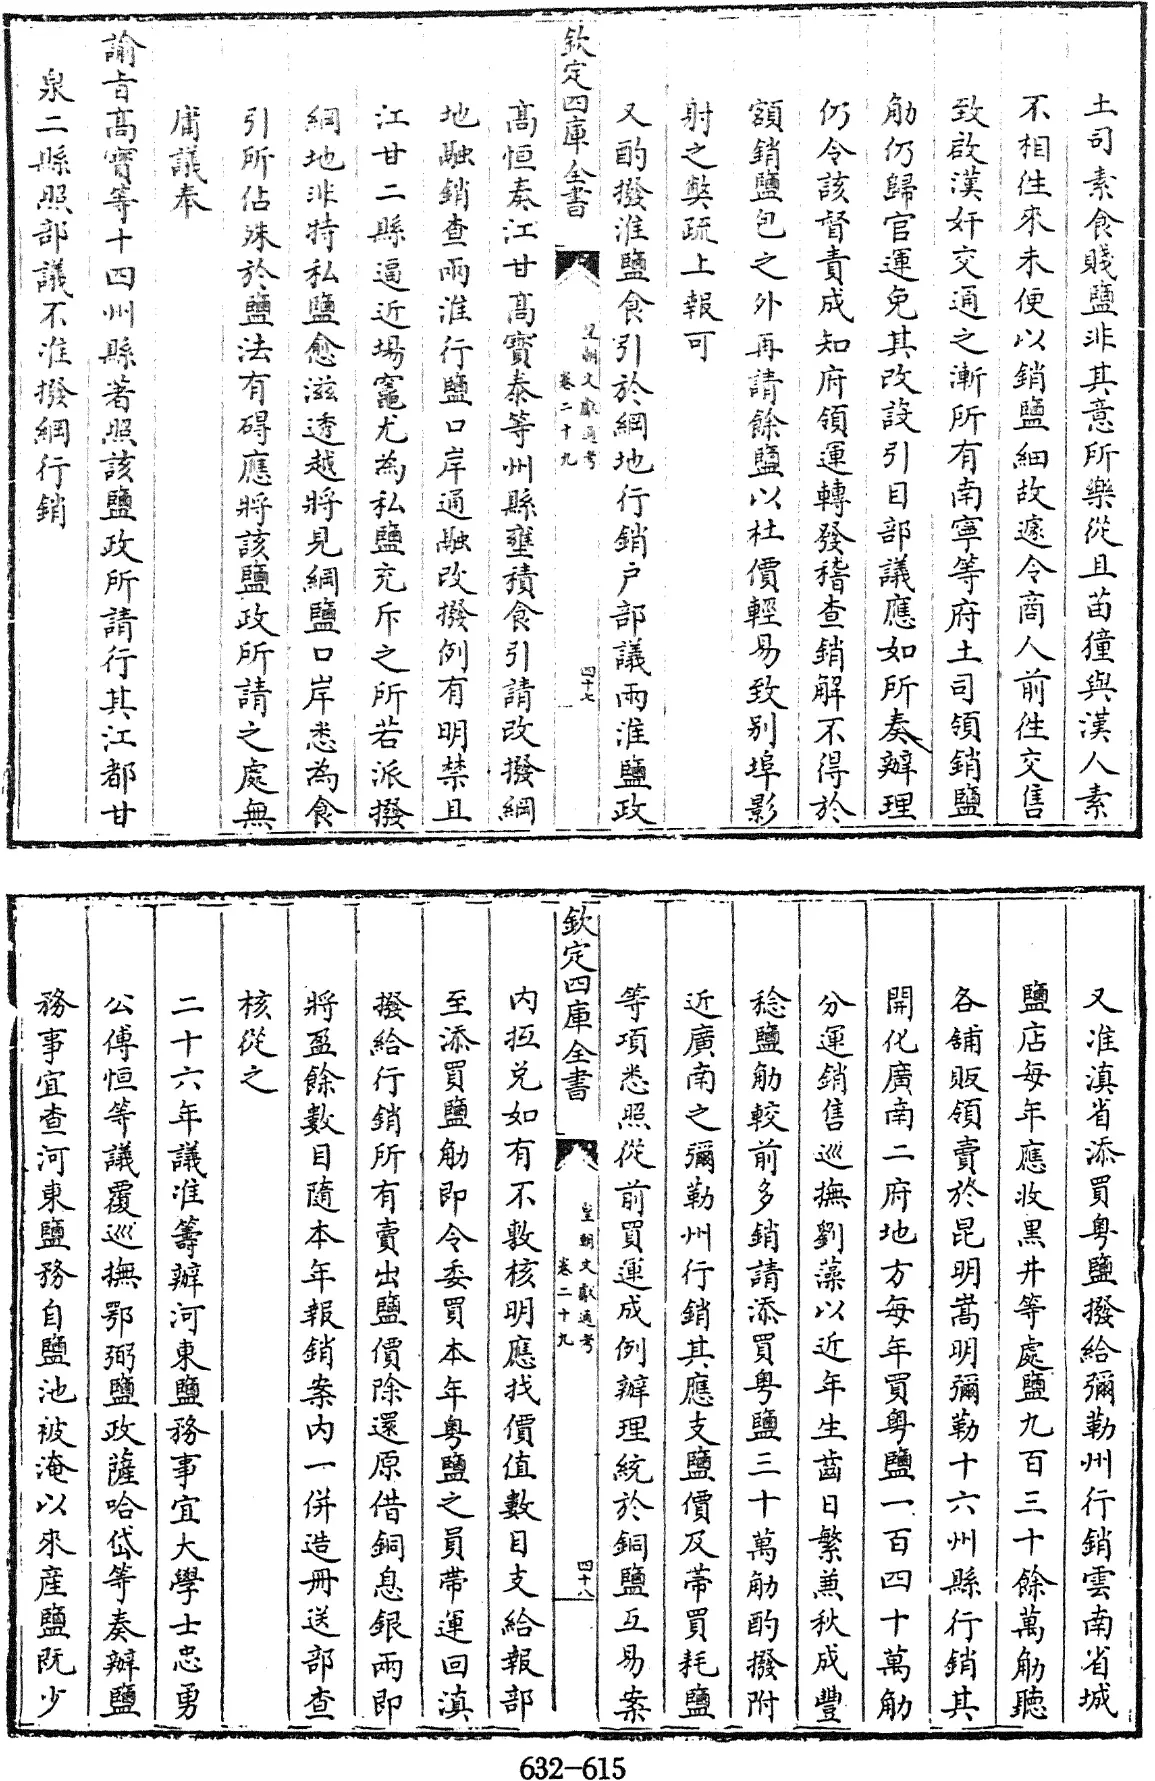 土司素食賤鹽非其意所樂從且苗獞與漢人素
不相徃來未便以銷鹽細故遽令商人前徃交售
致啟漢奸交通之漸所有南寧等府土司領銷鹽
觔仍歸官運免其改設引目部議應如所奏辦理
仍令該督責成知府領運轉發稽查銷解不得於
額銷鹽包之外再請餘鹽以杜價輕易致别埠影
射之弊疏上報可
又酌撥淮鹽食引於綱地行銷戸部議兩淮鹽政
欽定四庫全書
皇朝文獻通考
卷二十九
四十七
高恒奏江甘高寳泰等州縣壅積食引請改撥綱
地融銷查兩淮行鹽口岸通融改撥例有明禁且
江甘二縣逼近場竈尤為私鹽充斥之所若派撥
綱地非特私鹽愈滋透越將見綱鹽口岸悉為食
引所佔殊於鹽法有碍應將該鹽政所請之處無
庸議奉
諭旨高寳等十四州縣著照該鹽政所請行其江都甘
泉二縣照部議不准撥綱行銷
又准滇省添買粤鹽撥給彌勒州行銷雲南省城
鹽店每年應收黑井等處鹽九百三十餘萬觔聽
各舖販領賣於昆明嵩明彌勒十六州縣行銷其
開化廣南二府地方每年買粤鹽一百四十萬觔
分運銷售巡撫劉藻以近年生齒日繁兼秋成豐
稔鹽觔較前多銷請添買粤鹽三十萬觔酌撥附
近廣南之彌勒州行銷其應支鹽價及帶買耗鹽
等項悉照從前買運成例辦理統於銅鹽互易案
欽定四庫全書
皇朝文獻通考
卷二十九
四十八
内抵兑如有不敷核明應找價值數目支給報部
至添買鹽觔即令委買本年粤鹽之員帶運回滇
撥給行銷所有賣出鹽價除還原借銅息銀兩即
將盈餘數目隨本年報銷案内一併造冊送部查
核從之
二十六年議准籌辦河東鹽務事宜大學士忠勇
公傅恒等議覆巡撫鄂弼鹽政薩哈岱等奏辦鹽
務事宜查河東鹽務自鹽池被淹以來産鹽既少
632-615